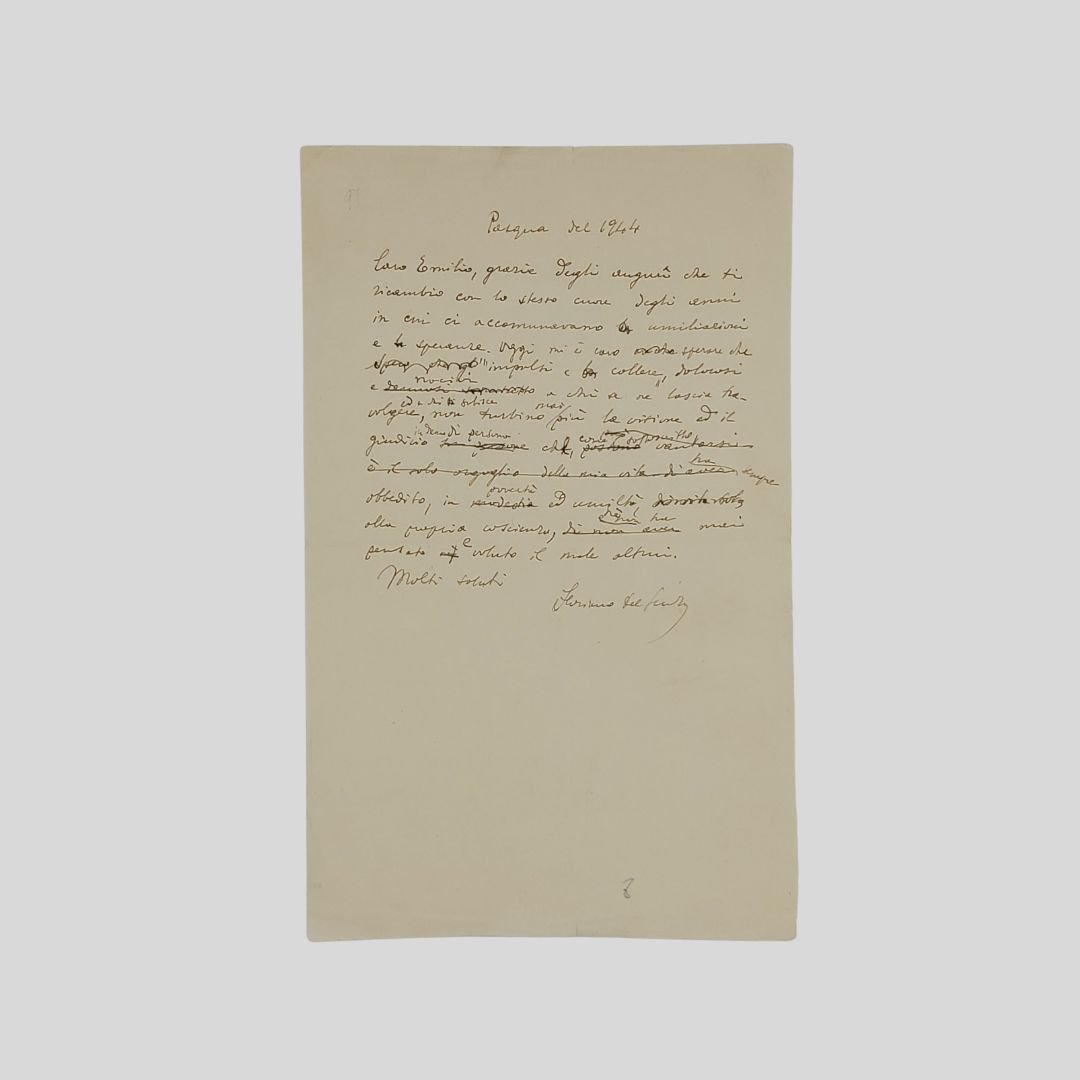 Pasqua del 1944
Caro Emilio, grazie degli auguri che ti
ricambio con lo stesso cuore degli anni
in cui ci accomunavano umiliazioni
e speranze. Oggi mi è caro sperare che
impulsi e collere, dolorosi
nocivi
e a chi se ne lascia tra-
ed a chi li subisce mai
volgere, non turbino più la visione ed il
persone
giudizio che, come
vantarsi
è il solo orgoglio della mia vita di aver sempre
ha
povertà
obbedito, in modestia ed umiltà,
ha
alla propria coscienza, di non aver mai
pensato e voluto il male altrui.
Molti saluti
Floriano Del Secolo
8